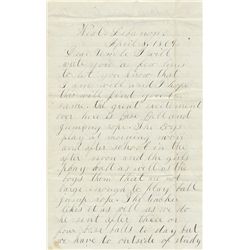 West Lebanon
April 3, 1869
Dear Uncle I will
write you a few lines
to let you know that
I am well and I hope
this will find you the
same. The great excitement
over here is base ball and
jumping rope. The boys
play at morning noon
and after school in the
after noon and the girls
play ball as well as the
boys them that are not
large enough to play ball
jump rope. The teacher
likes it as well as we do
he sent after three or
four base balls to day but
we have to outside of study